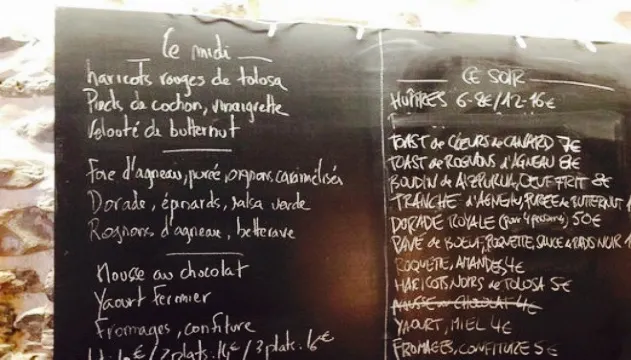 Le midi
haricots rouges de tolosa
Pieds de cochon, vinaigrette
Velouté de butternut
Foie d'agneau, purée, oignons caramélisés
Dorade, épinards, salsa verde
Rognons d'agneau, betterave
Mousse au chocolat
Yaourt Fermier
Fromages, confiture
2 plats: 14€ / 3 plats: 16€
CE SOIR
HUÎTRES 6-8€/12-16€
TOAST de COEURS de CANARD 7€
TOAST de ROGNONS d'AGNEAU 8€
BOUDIN de AIZPURUA, OEUF FRIT 8€
TRANCHE d'AGNEAU, PURÉE de BUTTERNUT
DORADE ROYALE (pour 4 personnes) 50€
PAVÉ de BOEUF, ROQUETTE, SAUCE de RADIS NOIR
ROQUETTE, AMANDES 4€
HARICOTS NOIRS de TOLOSA 5€
MOUSSE au CHOCOLAT 4€
YAOURT, MIEL 4€
FROMAGES, CONFITURE 5€